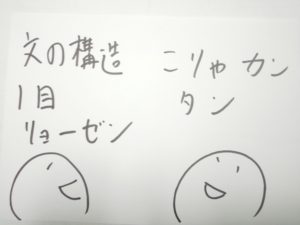 文の構造
1目
リョーゼン
こりゃカン
タン